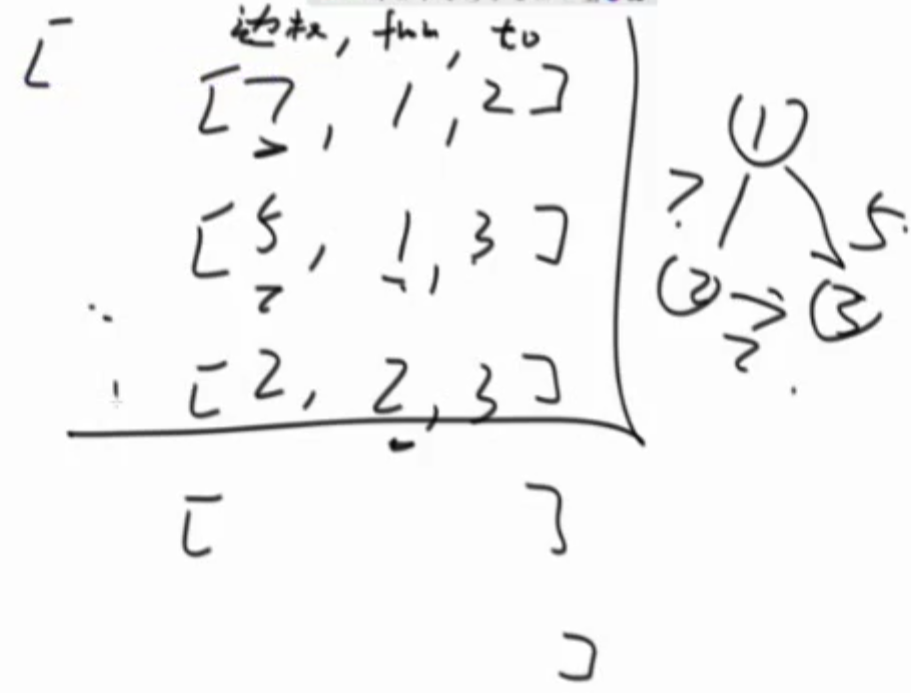 [
边权, from, to
[7, 1, 2]
[5, 1, 3]
[2, 2, 3]
[ ]
]
1
7
5
2
3
2